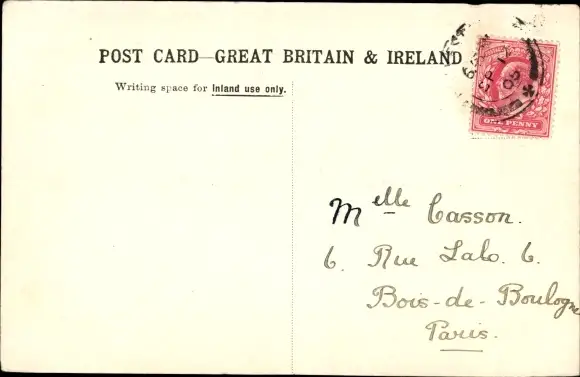 POST CARD—GREAT BRITAIN & IRELAND
Writing space for Inland use only.
ONE PENNY
Melle Casson.
6. Rue Lalo. 6.
Bois-de-Boulogne
Paris.